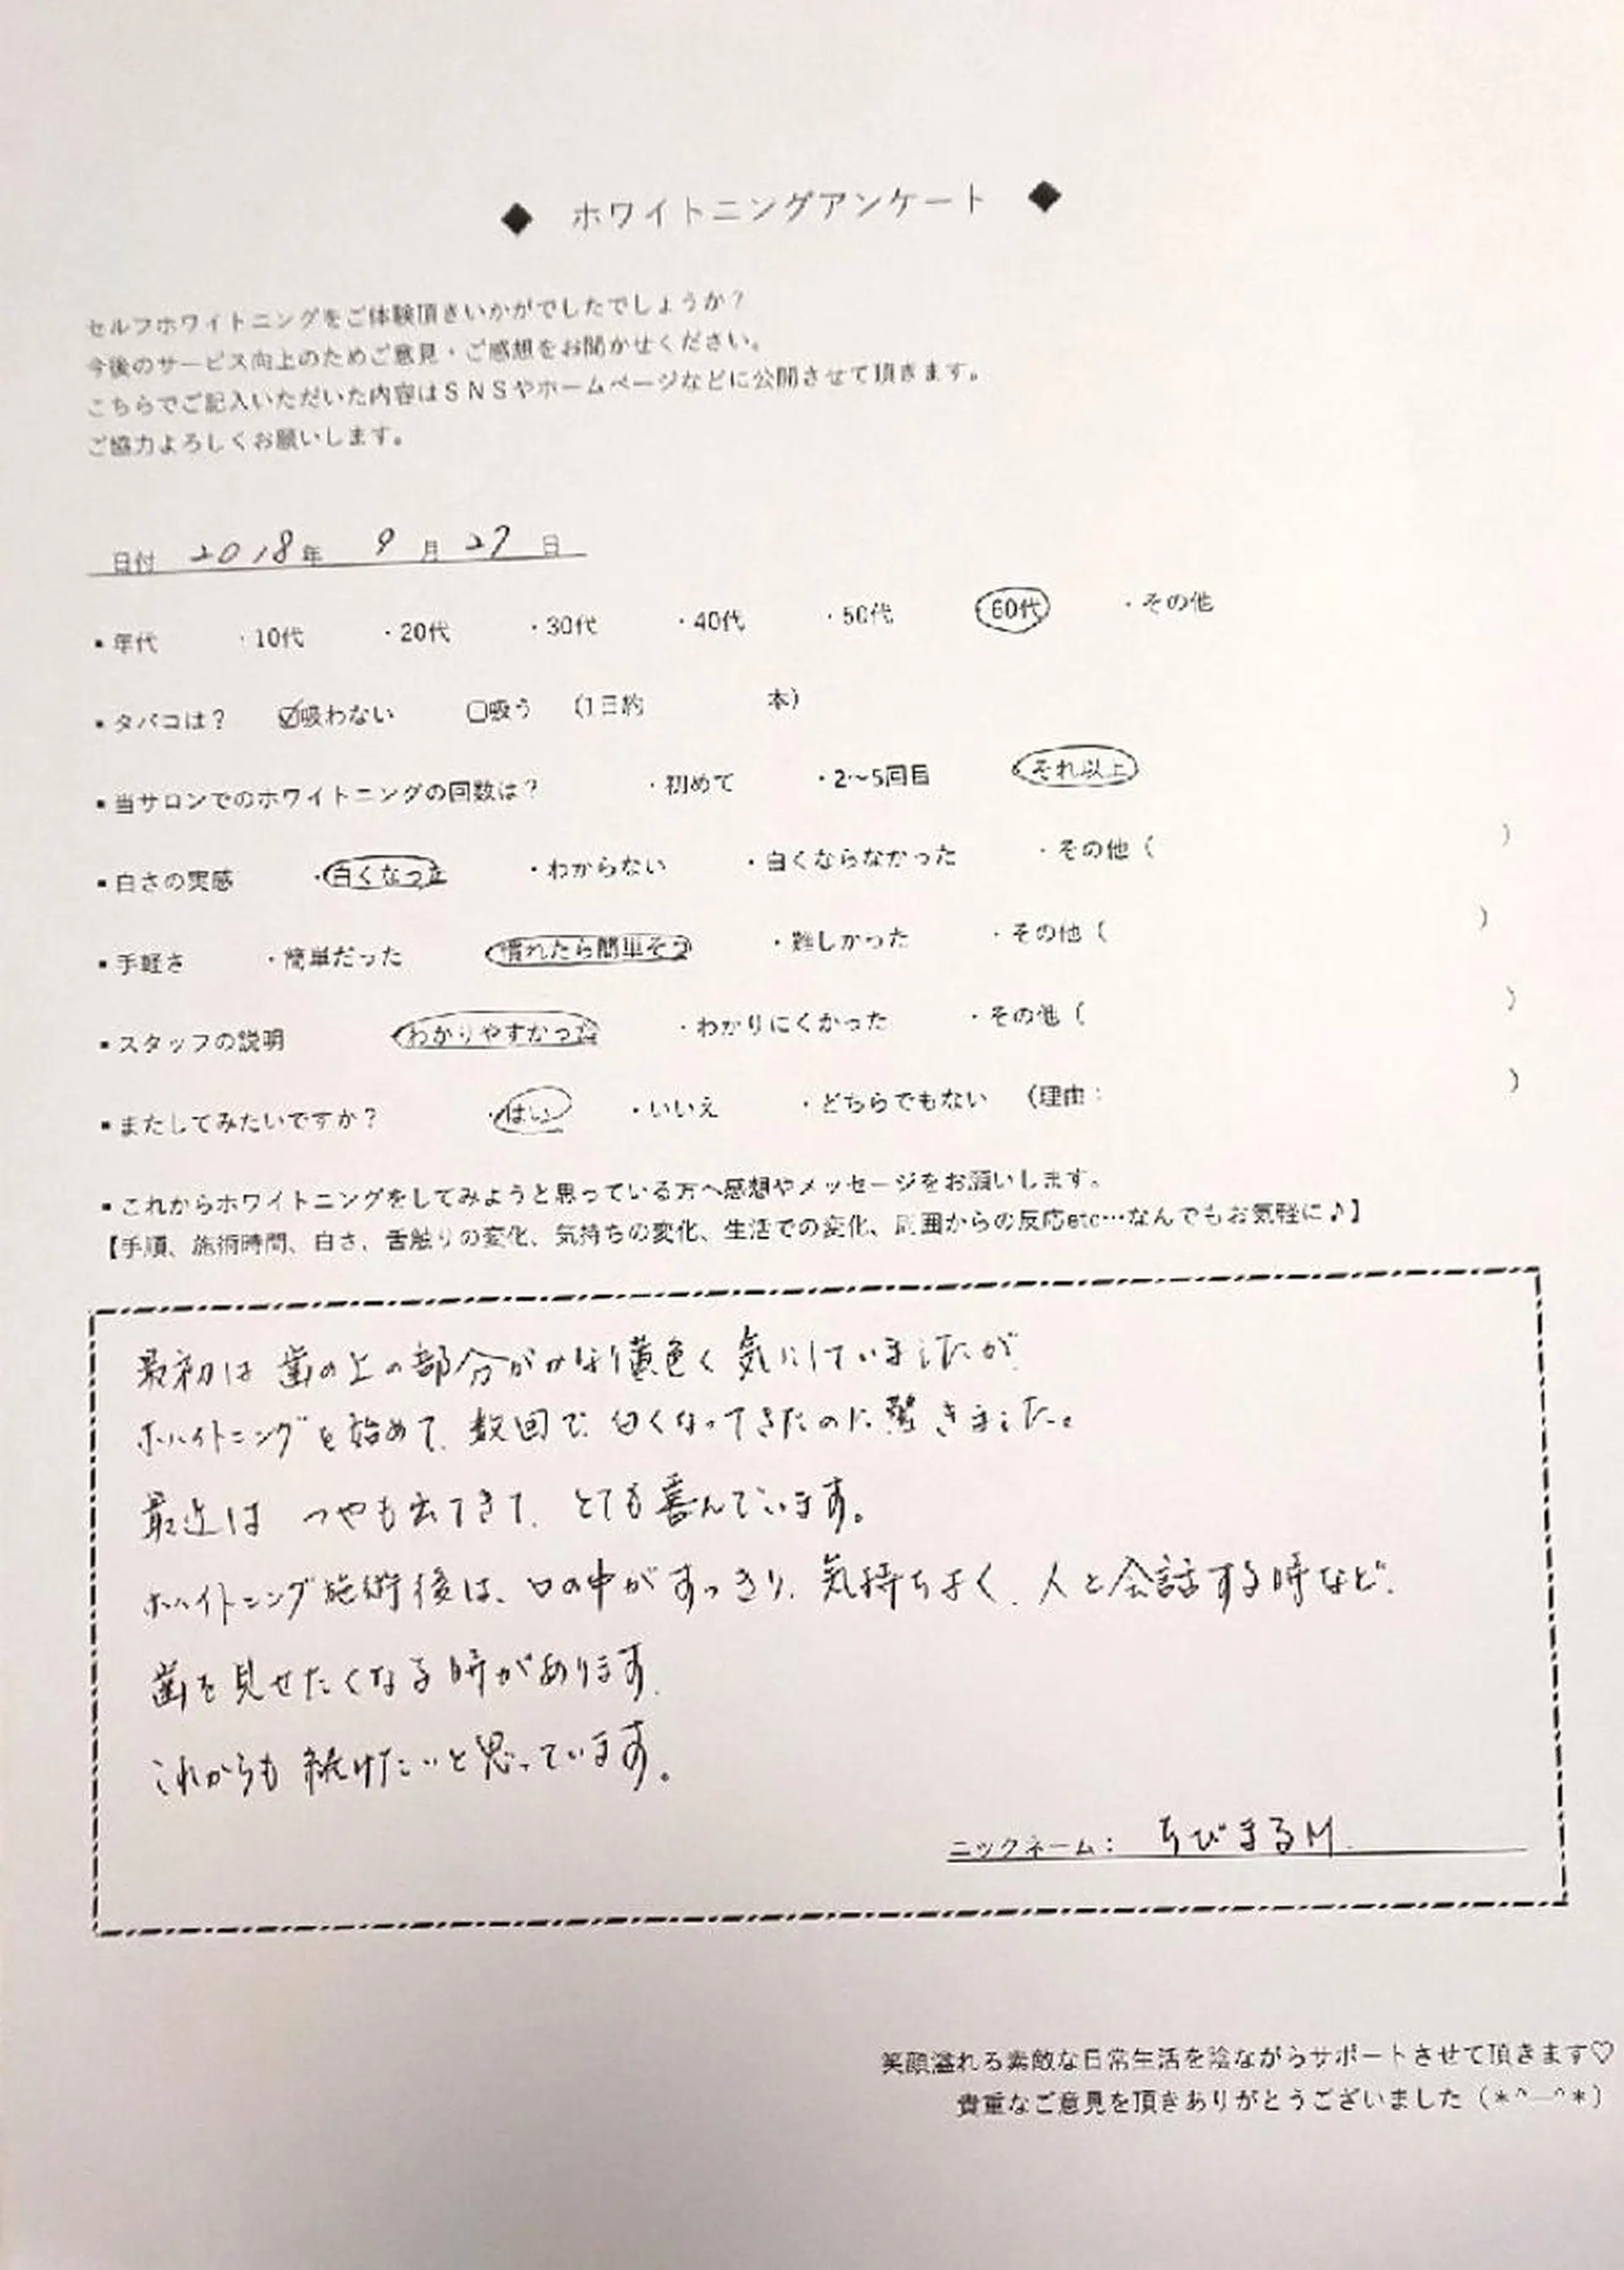 ◆ ホワイトニングアンケート ◆
セルフホワイトニングをご体験頂きいかがでしたでしょうか？
今後のサービス向上のためご意見・ご感想をお聞かせください。
こちらでご記入いただいた内容はＳＮＳやホームページなどに公開させて頂きます。
ご協力よろしくお願いします。
日付 2018年 9月 27日
▪年代 ・10代 ・20代 ・30代 ・40代 ・50代 60代 ・その他
▪タバコは？ ☑吸わない ☐吸う （1日約 本）
▪当サロンでのホワイトニングの回数は？ ・初めて ・2～5回目 それ以上
▪白さの実感 ・白くなった ・わからない ・白くならなかった ・その他（ ）
▪手軽さ ・簡単だった 慣れたら簡単そう ・難しかった ・その他（ ）
▪スタッフの説明 わかりやすかった ・わかりにくかった ・その他（ ）
▪またしてみたいですか？ ・はい ・いいえ ・どちらでもない （理由： ）
▪これからホワイトニングをしてみようと思っている方へ感想やメッセージをお願いします。
【手順、施術時間、白さ、舌触りの変化、気持ちの変化、生活での変化、周囲からの反応etc…なんでもお気軽に♪】
最初は 歯の上の部分がかなり黄色く 気にしていましたが
ホハイトニングを始めて、数回で 白くなってきたのに驚きました。
最近は つやも出てきて、とても喜んでいます。
ホハイトニング施術後は、口の中がすっきり、気持ちよく、人と会話する時など、
歯を見せたくなる時があります。
これからも 続けたいと思っています。
ニックネーム： ちびまるM.
笑顔溢れる素敵な日常生活を陰ながらサポートさせて頂きます♡
貴重なご意見を頂きありがとうございました（＊^―^＊）